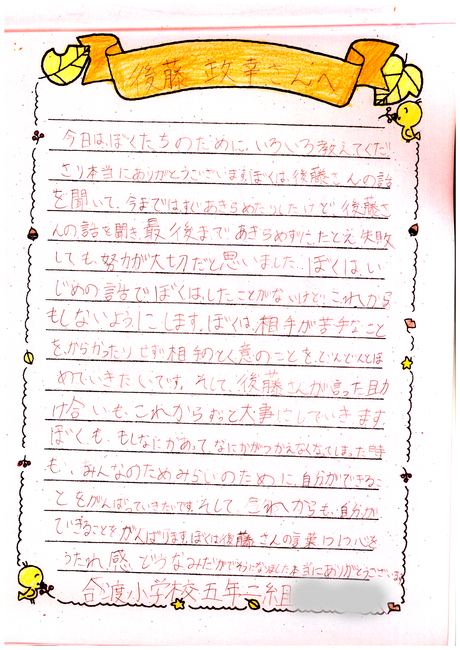 後藤 政幸さんへ
今日は、ぼくたちのために、いろいろ教えてくだ
さり本当にありがとうございます。ぼくは、後藤さんの話
を聞いて、今まではすぐあきらめたりしたけど、後藤さ
んの話を聞き、最後まであきらめずに、たとえ失敗
しても、努力が大切だと思いました。ぼくは、い
じめの話でぼくは、したことがないけど、これから
もしないようにします。ぼくは、相手が苦手なこと
を、からかったりせず相手のとく意のことを、どんどんとほ
めていきたいです。そして、後藤さんが言った助
け合いも、これからずっと大事にしていきます
ぼくも、もしなにかあって、なにかがつかえなくなってしまった時
も、みんなのためみらいのために、自分ができるこ
とをがんばっていきたいです。そして、これからも、自分が
できることをがんばります。ぼくは後藤さんの言葉1つ1つ心を
うたれ、感どうなみだがでそうになりました本当にありがとうございます
合渡小学校五年二組